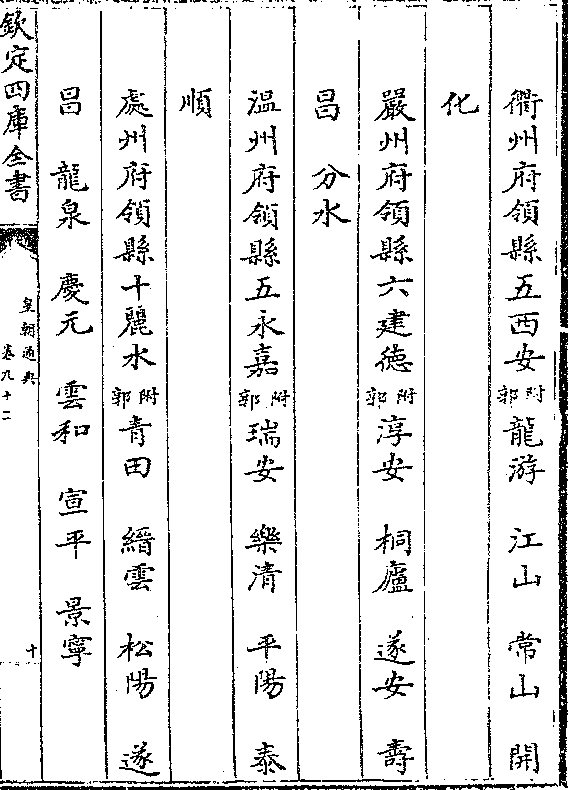 衢州府領縣五西安附郭龍游　江山　常山　開
化
嚴州府領縣六建德附郭淳安　桐廬　遂安　壽
昌　分水
溫州府領縣五永嘉附郭瑞安　樂清　平陽　泰
順
處州府領縣十麗水附郭青田　縉雲　松陽　遂
昌　龍泉　慶元　雲和　宣平　景寧
欽定四庫全書
皇朝通典
卷九十二
十